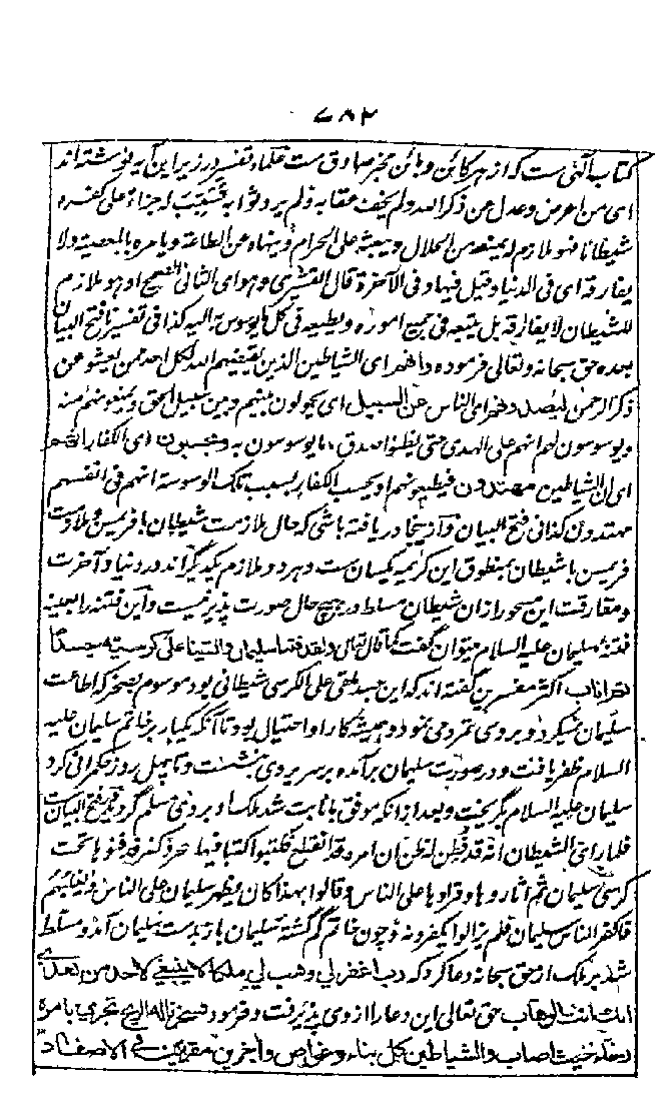 ۷۸۲
کتاب الٰہی ست کہ از ہر کائن و بائن مخبر صادق ست علماء تفسیر در زیر این آیہ نوشتہ اند
ای من اعرض و عدل عن ذکر الله ولم یخف عقابه ولم یرد ثوابه نسبب له جزاء علی کفره
شیطانا فهو ملازم له یمنعه من الحلال ویبعثه علی الحرام وینهاه عن الطاعة ویامره بالمعصیة ولا
یفارقه ای فی الدنیا وقیل فیها وفی الآخرة قال القشیری وهو ای الثانی الصحیح او هو ملازم
للشیطان لا یفارقه بل یتبعه فی جمیع اموره ویطیعه فی کل ما یوسوس به الیه کذا فی تفسیرنا فتح البیان
بعده حق سبحانه و تعالی فرموده وانهم ای الشیاطین الذین یقیضهم الله لکل احد ممن یعشو عن
ذکر الرحمن لیصدونهم ای الناس عن السبیل ای یحولون بینهم وبین سبیل الحق ویمنعونهم منه
ویوسوسون لهم انهم علی الهدی حتی یظنوا صدق ما یوسوسون به ویحسبون ای الکفار انهم
ای ان الشیاطین مهتدون فیطیعونهم او یحسب الکفار بسبب تلک الوسوسة انهم فی انفسهم
مهتدون کذا فی فتح البیان و از ینجا دریافته باشی که حال ملازمت شیطان با قرین و ملازمت
قرین با شیطان بمنطوق این کریمه یکسان ست و هر دو ملازم یکدیگر اند در دنیا و آخرت
و مفارقت این مسحور ازان شیطان مسلط در هیچ حال صورت پذیر نیست و این فتنه را بعینه
فتنهٔ سلیمان علیه السلام میتوان گفت کما قال تعالی ولقد فتنا سلیمان والقینا علی کرسیه جسدا
ثم اناب اکثر مفسرین گفته اند که این جسد ملقی علی الکرسی شیطانی بود موسوم بصخر که اطاعت
سلیمان نمیکرد و بر وی تمرد می نمود و همیشه کار او احتیال بود تا آنکه یکبار بر خاتم سلیمان علیه
السلام ظفر یافت و در صورت سلیمان برآمده بر سریر وی بنشست و تا چهل روز حکمرانی کرد
سلیمان علیه السلام بگریخت و بعد ازانکه موفق بانابت شد ملک او بر وی مسلم گردید در فتح البیان ست
فلما رای الشیطان انه قد فطن له ظن ان امره قد انقطع فکتبوا کتبا فیها سحر و کفر فدفنوها تحت
کرسی سلیمان ثم اثاروها وقراوها علی الناس وقالوا بهذا کان یظهر سلیمان علی الناس ویغلبهم
فاکفر الناس سلیمان فلم یزالوا یکفرونه و چون خاتم گم گشتهٔ سلیمان باز بدست سلیمان آمد و مسلط
شد بر ملک از حق سبحانه دعا کرد که رب اغفر لی وهب لی ملکا لا ینبغی لاحد من بعدی
انک انت الوهاب حق تعالی این دعا را از وی پذیرفت و فرمود فسخرنا له الریح تجری بامره
رخاء حیث اصاب والشیاطین کل بناء وغواص وآخرین مقرنین فی الاصفاد